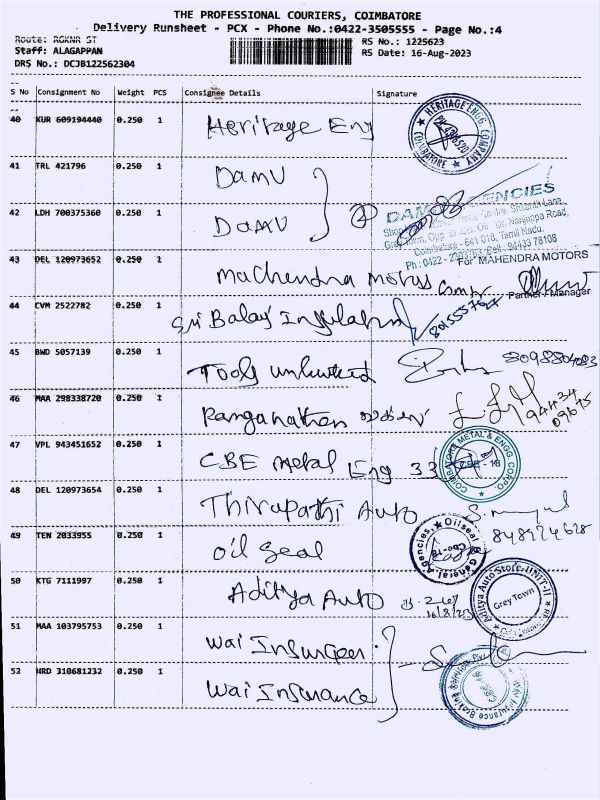 THE PROFESSIONAL COURIERS, COIMBATORE
Delivery Runsheet - PCX - Phone No.:0422-3505555 - Page No.:4
Route: RGKNR ST
Staff: ALAGAPPAN
DRS No.: DCJB122562304
RS No.: 1225623
RS Date: 16-Aug-2023
S No Consignment No Weight PCS Consignee Details Signature
40 KUR 609194440 0.250 1 Heritage Eng
HERITAGE ENGG. COMPANY COIMBATORE
41 TRL 421796 0.250 1 DAMU
42 LDH 700375360 0.250 1 DAMU
Coimbatore - 641 018, Tamil Nadu.
43 DEL 120973652 0.250 1 Machendra Motors
For MAHENDRA MOTORS
Partner / Manager
44 CVM 2522782 0.250 1 Sri Balaji
45 BWD 5057139 0.250 1 Tools unlimited
46 MAA 298338720 0.250 1 Ranganathan
94434
09675
47 VPL 943451652 0.250 1 CBE metal Eng
COIMBATORE METAL & ENGG. CORPO.
CBE - 18
48 DEL 120973654 0.250 1 Thirupathi Auto
49 TEN 2033955 0.250 1 oil seal
Oilseal & General Agencies,
Cbe-18
50 KTG 7111997 0.250 1 Aditya Auto
Aditya Auto Store-UNIT-II
Grey Town
51 MAA 103795753 0.250 1 Wai
52 HRD 310681232 0.250 1 Wai Insurance